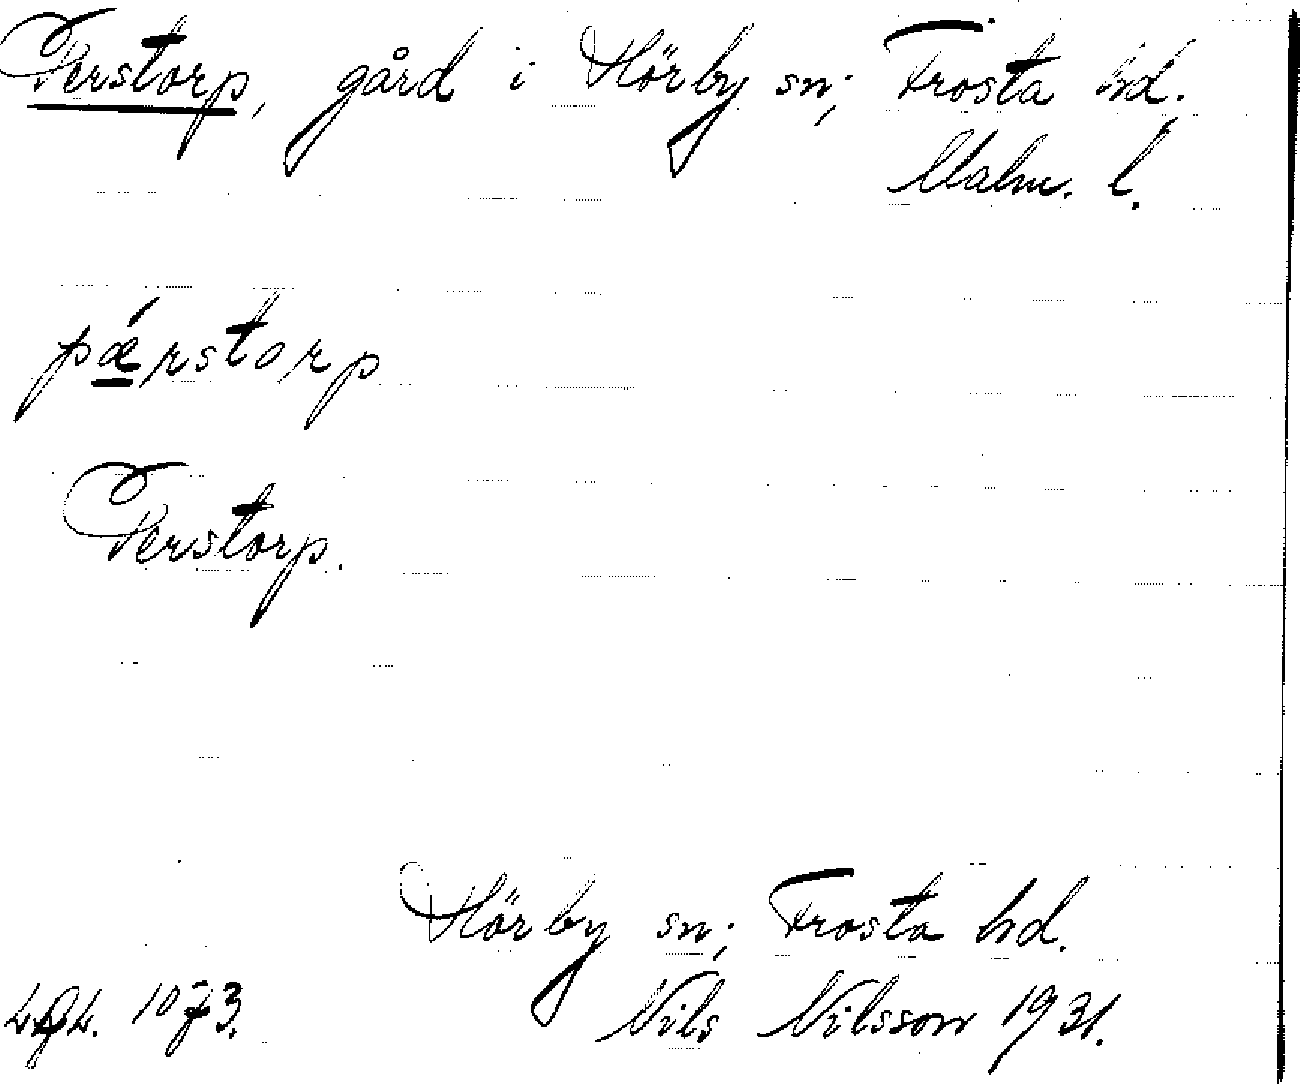 Perstorp, gård i Hörby sn; Frosta hd.
Malm. l.
pǽrstorp
Perstorp.
Hörby sn; Frosta hd.
Nils Nilsson 1931.